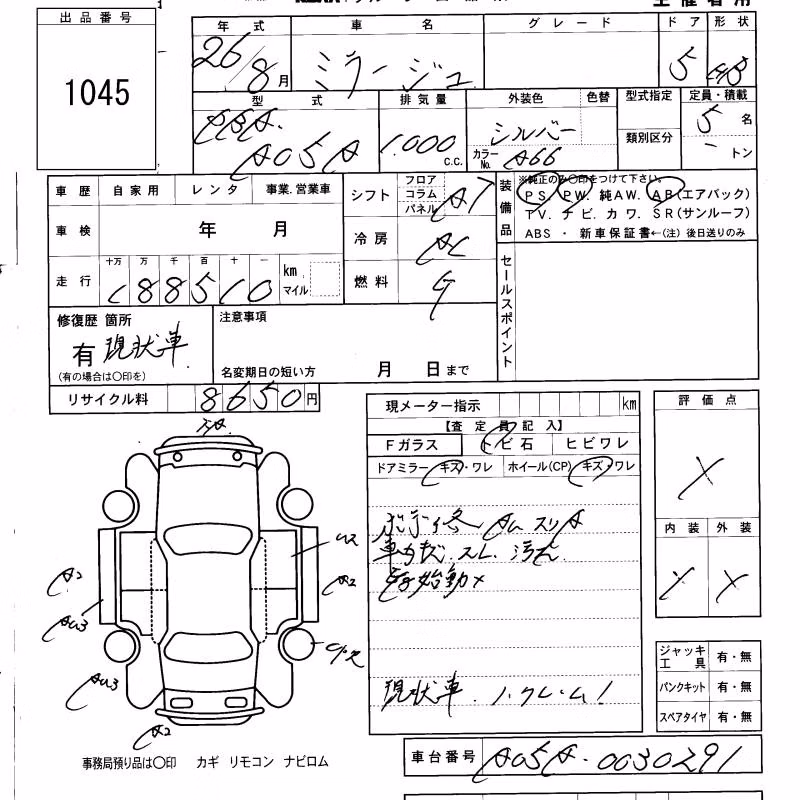 出品番号
1045
年式 車名 グレード ドア 形状
26/8月 ミラージュ 5 HB
型式 排気量 外装色 色替 型式指定 定員・積載
DBA. A05A 1.000 c.c. シルバー 類別区分 5名
カラーNo. A66 - トン
車歴 自家用 レンタ 事業.営業車
シフト フロア コラム パネル AT
装備品
※純正のみ〇印をつけて下さい。
PS. PW. 純AW. AB(エアバック)
TV. ナビ. カワ. SR(サンルーフ)
ABS ・ 新車保証書←(注) 後日送りのみ
車検 年 月
冷房 AC
走行 十万 万 千 百 十 一 km マイル
188510
燃料 G
セールスポイント
修復歴 箇所
有 現状車
(有の場合は〇印を)
注意事項
名変期日の短い方 月 日まで
リサイクル料 8650円
現メーター指示 km
【査定員記入】
Fガラス トビ石 ヒビワレ
ドアミラー キズ・ワレ ホイール(CP) キズ・ワレ
評価点
X
内装 外装
X X
A2
AU3
AU3
A2
A2
現状車. ノークレーム!
ジャッキ工具 有・無
パンクキット 有・無
スペアタイヤ 有・無
事務局預り品は〇印 カギ リモコン ナビロム
車台番号 A05A-0030291